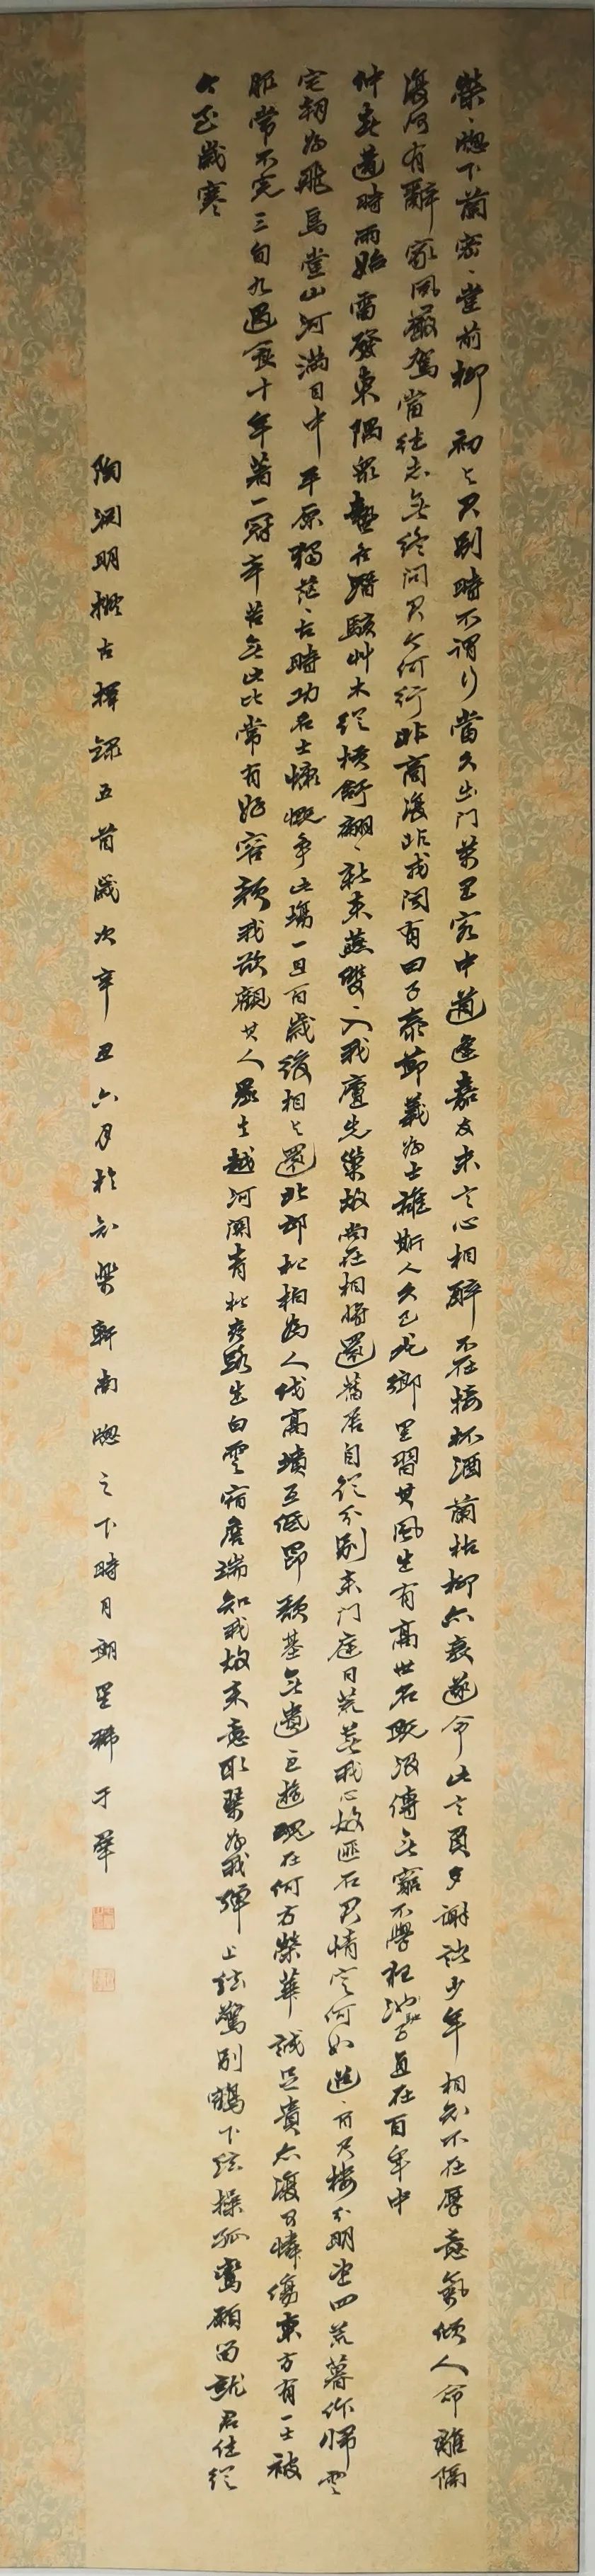 榮榮窗下蘭密密堂前柳初與君別時不謂行當久出門萬里客中道逢嘉友未言心相醉不在接杯酒蘭枯柳亦衰遂令此言負多謝諸少年相知不在厚意氣傾人命離隔
復何有辭家夙嚴駕當往志無終問君今何行非商復非戎聞有田子泰節義為士雄斯人久已死鄉里習其風生有高世名既沒傳無窮不學狂馳子直在百年中
仲春遘時雨始雷發東隅眾蟄各潛駭草木從橫舒翩翩新來燕雙雙入我廬先巢故尚在相將還舊居自從分別來門庭日荒蕪我心故匪石君情定何如迢迢百尺樓分明望四荒暮作歸雲
宅朝為飛鳥堂山河滿目中平原獨茫茫古時功名士慷慨爭此場一旦百歲後相與還北邙松柏為人伐高墳互低昂頹基無遺主遊魂在何方榮華誠足貴亦復可憐傷東方有一士被
服常不完三旬九遇食十年著一冠辛苦無此比常有好容顏我欲觀其人晨去越河關青松夾路生白雲宿簷端知我故來意取琴為我彈上弦驚別鶴下弦操孤鸞願留就君住從
今至歲寒
陶淵明擬古揮錄五首歲次辛丑六月於知樂軒南窗之下時月朗星稀 于犖